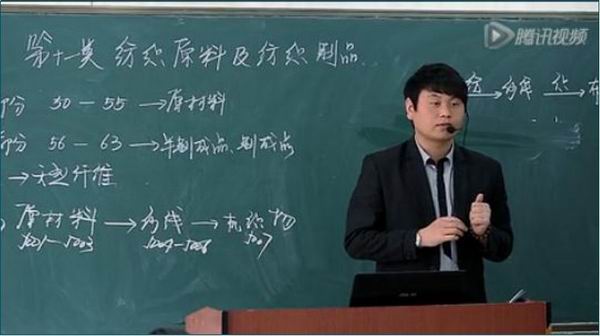 腾讯视频
第十一类 纺织原料及纺织制品
部份 50－55 →原材料
部份 56－63 →半制成品、制成品
→天然纤维
原材料 → 纱线 → 机织物
5001—5003 5004—5006 5007
纺 → 纱线 织 → 布